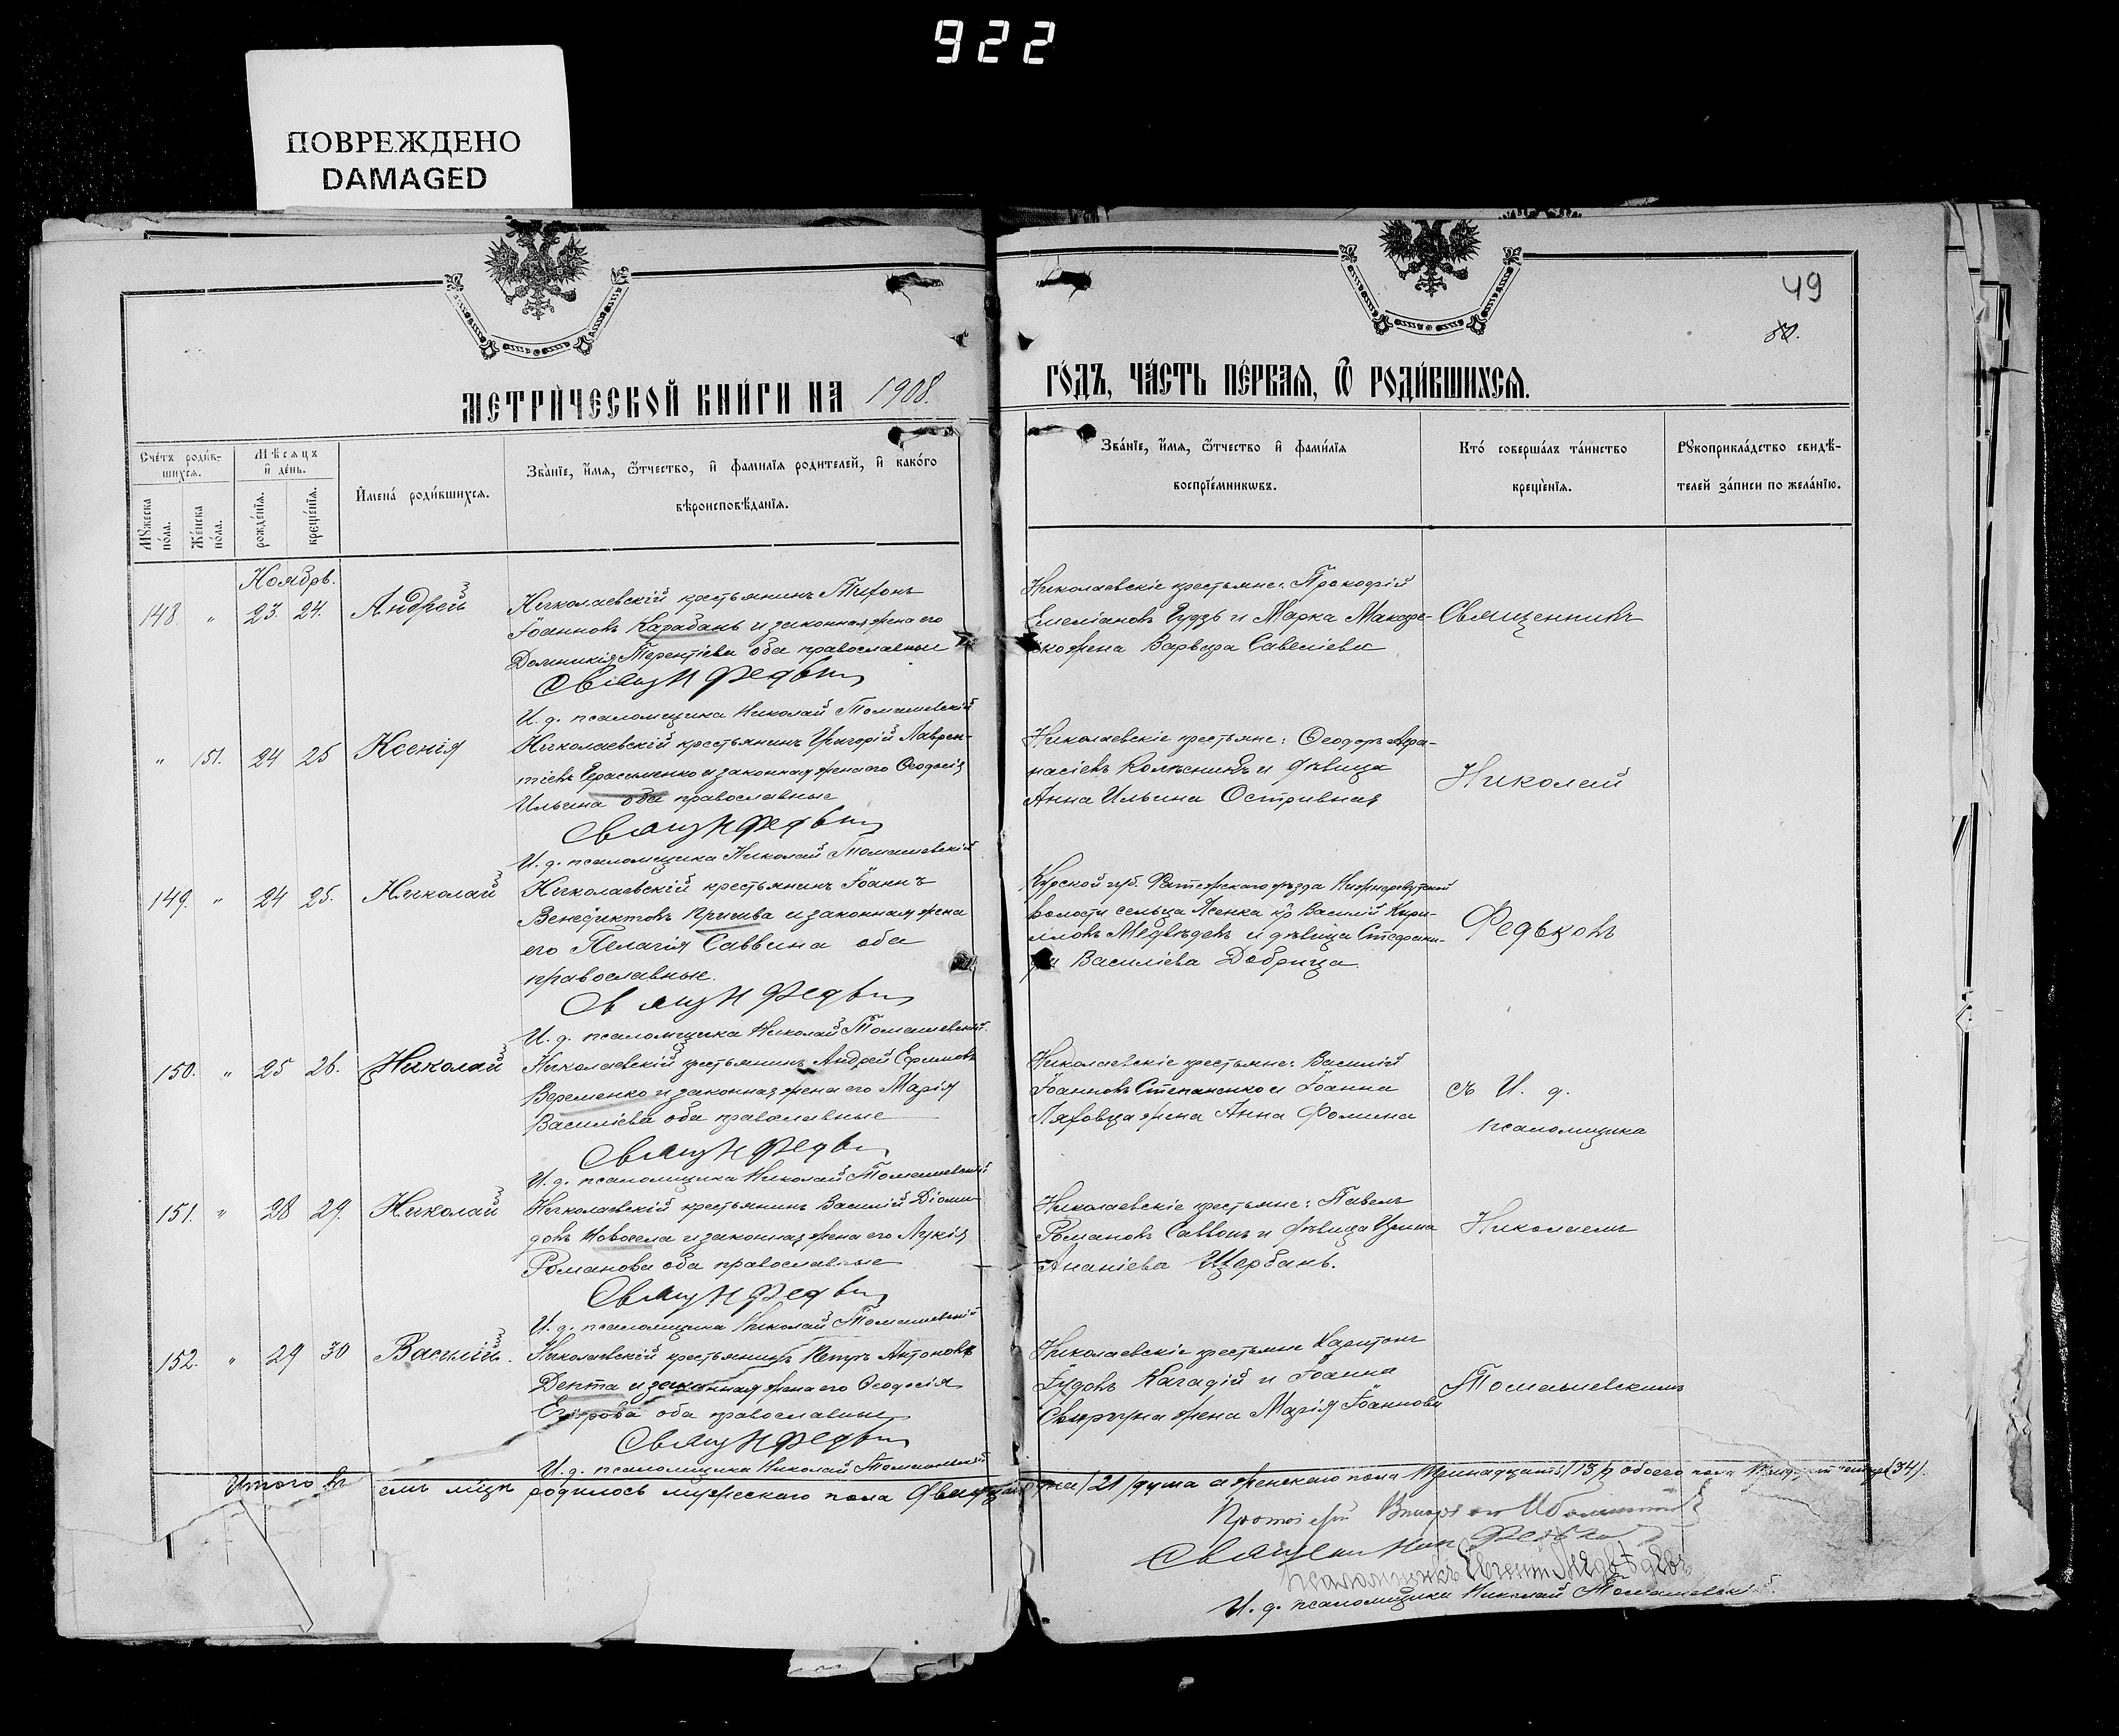 922
ПОВРЕЖДЕНО
DAMAGED
49
МЕТРИ́ЧЕСКОЙ КНИ́ГИ НА 1908.
ГО́ДЪ, ЧА́СТЬ ПЕ́РВАЯ, Ѿ РОДИ́ВШИХСЯ.
Сче́тъ роди́вшихся.
Мѣсяцъ и҆ де́нь.
Мꙋ́жеска по́ла.
Же́нска по́ла.
рожде́нїя.
креще́нїя.
И҆мена́ роди́вшихся.
Зва́нїе, и҆́мя, ѻ҆́тчество, и҆ фами́лїя роди́телей, и҆ како́гѡ
вѣроисповѣ́данїя.
Зва́нїе, и҆́мя, ѻ҆́тчество и҆ фами́лїя
воспрїе́мникѡвъ.
Кто́ соверша́лъ та́инство
креще́нїя.
Рꙋкоприкла́дство свидѣ́-
телей за́писи по жела́нїю.
Ноябрь.
148. " 23 24. Андрей
Николаевскій крестьянинъ Тихонъ
Іоанновъ Карабань и законная жена его
Домникія Терентіева оба православные
Свящ Н Федьк
И. д. псаломщика Николай Томашевскій
Николаевскіе крестьяне: Прокофій
Емеліановъ Гудзь и Марка Макаре-
нко жена Варвара Савеліева
Священникъ
" 151. 24 25 Ксенія
Николаевскій крестьянинъ Григорій Лаврен-
тіевъ Герасименко и законная жена его Ѳеодосія
Ильина оба православные
Свящ Н Федьк
И. д. псаломщика Николай Томашевскій
Николаевскіе крестьяне: Ѳеодоръ Аѳа-
насіевъ Колѣсникъ и дѣвица
Анна Ильина Остривная
Николай
149. " 24 25. Николай
Николаевскій крестьянинъ Іоаннъ
Венедиктовъ Прішва и законная жена
его Пелагія Саввина оба
православные.
Свящ Н Федьк
И. д. псаломщика Николай Томашевскій.
Курской губ. Фатежскаго уѣзда
волости сельца Ясенка кр Василій Кири-
лловъ Медвѣдевъ и дѣвица Стефани-
да Василіева Добрица.
Федьковъ
150. " 25 26. Николай
Николаевскій крестьянинъ Андрей Ефимовъ
Веременко и законная жена его Марія
Василіева оба православные
Свящ Н Федьк
И. д. псаломщика Николай Томашевскій
Николаевскіе крестьяне: Василій
Іоанновъ Степаненко и Іоанна
Ляховца жена Анна Фомина
съ И. д.
псаломщика
151. " 28 29. Николай
Николаевскій крестьянинъ Василій Діоми-
довъ Новосела и законная жена его Лукія
Романова оба православные
Свящ Н Федьк
И. д. псаломщика Николай Томашевскій
Николаевскіе крестьяне: Павелъ
Романовъ Саввонъ и дѣвица Ирина
Ананіева Щербань.
Николаемъ
152. " 29 30 Василій.
Николаевскій крестьянинъ Петръ Антоновъ
Депта и законная жена его Ѳеодосія
Егорова оба православные
Свящ Н Федьк
И. д. псаломщика Николай Томашевскій
Николаевскіе крестьяне Харитонъ
Іудовъ Кагадій и Іоанна
Свиргуна жена Марія Іоаннова
Томашевскимъ
Итого въ емъ мцѣ родилось мужескаго пола двадцать /21/ душа а женскаго пола тринадцать /13/ обоего пола (34).
Протоіерей
Священник Федьков
псаломщикъ Евгеній Медвѣдевъ
И. д. псаломщика Николай Томашевскій.